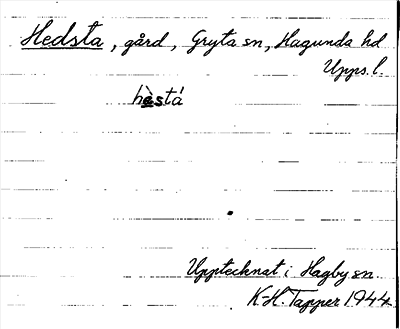 Hedsta, gård, Gryta sn, Hagunda hd
Upps. l.
hèstá
Upptecknat i Hagby sn
K-H. Tapper 1944